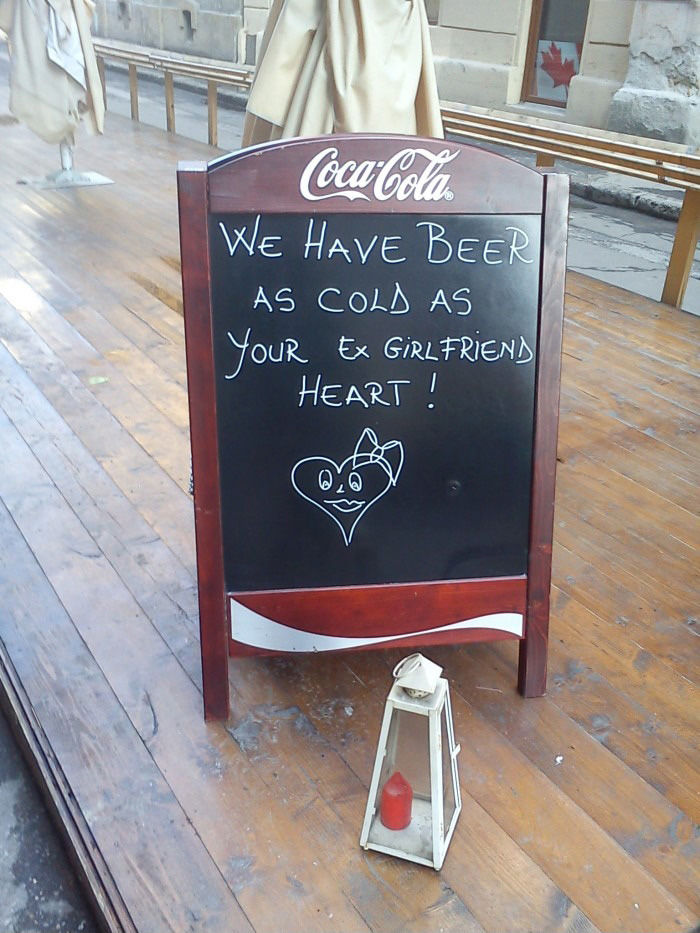 Coca-Cola®
WE HAVE BEER
AS COLD AS
YOUR Ex GiRLFRiEND
HEART !